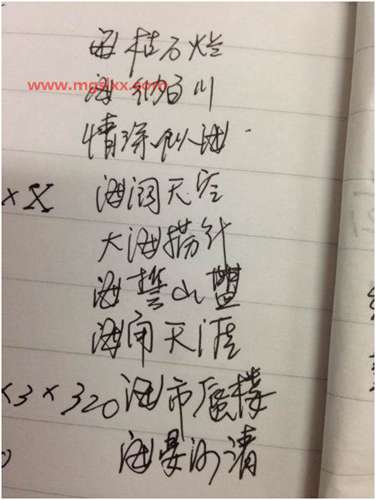 海枯石烂
海纳百川
情深似海
×X 海阔天空
大海捞针
海誓山盟
海角天涯
×3×320 海市蜃楼
海晏河清